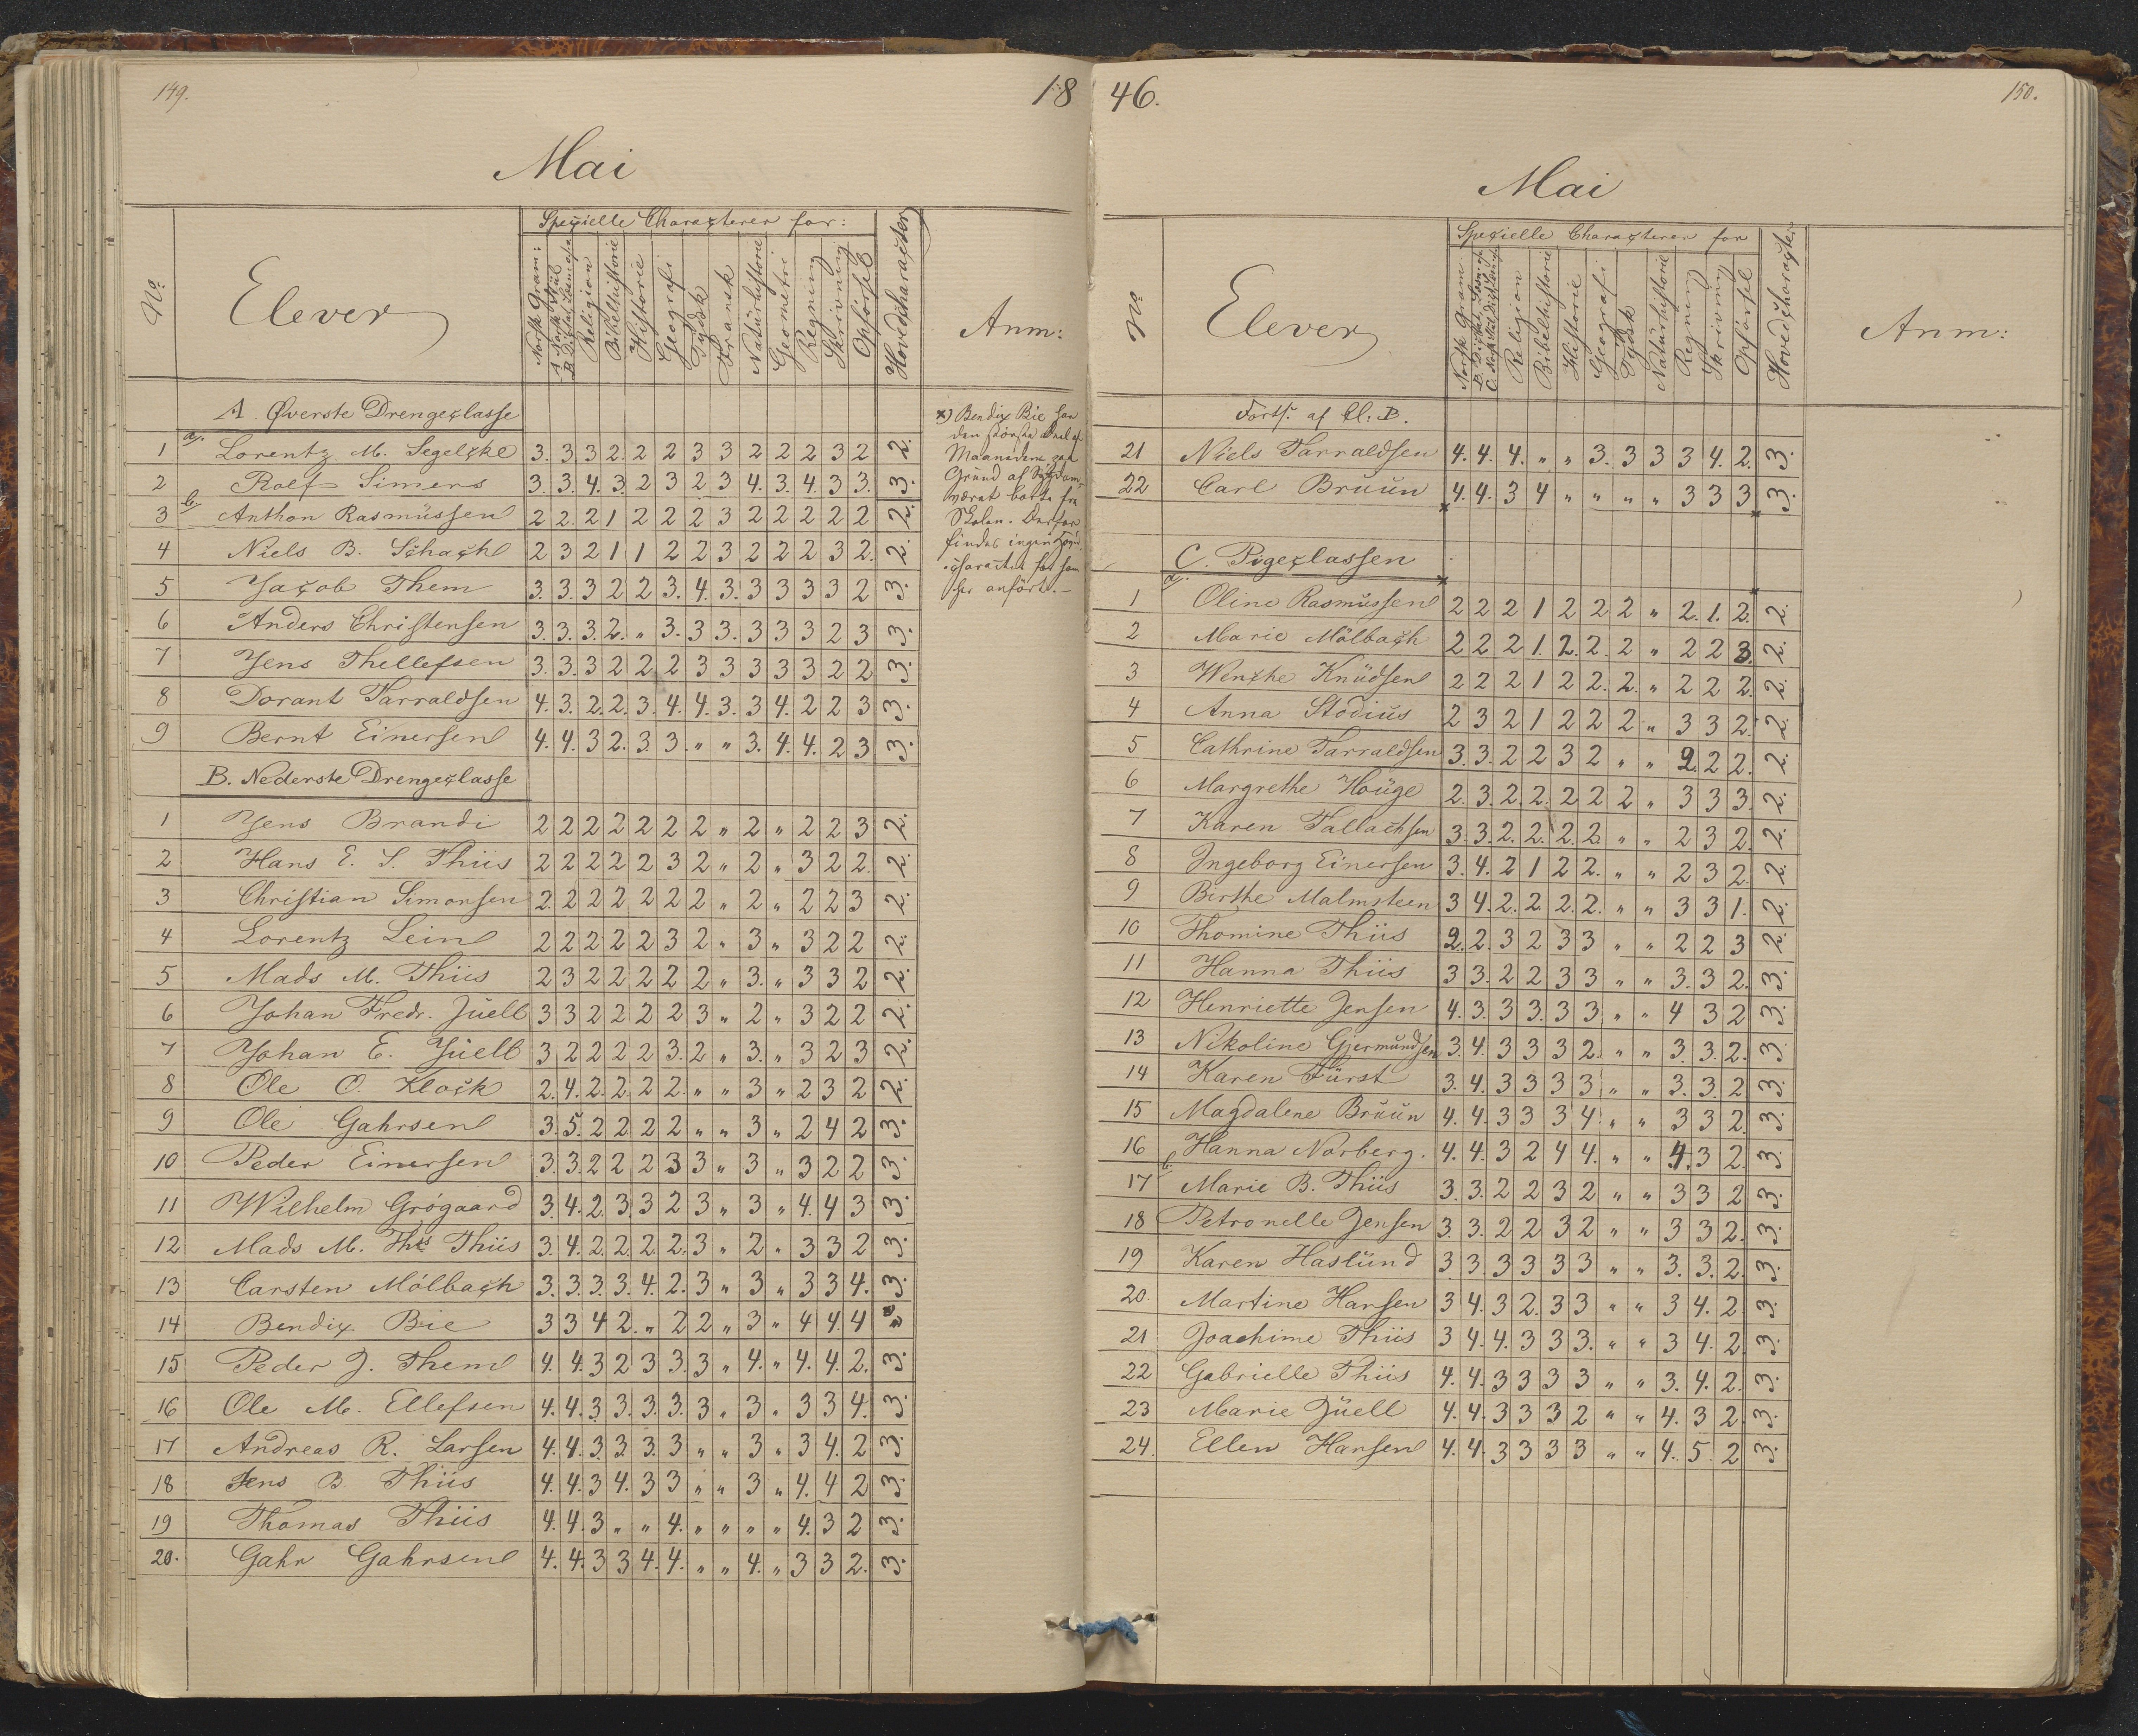 149.
18
Mai
No.
Elever
Specielle Characterer for:
Norsk Gram:
A Norsk Stiil
B Dictat
Religion
Bibelhistorie
Historie
Geografi
Tydsk
Fransk
Naturhistorie
Geometri
Regning
Skrivning
Opførsel
Hovedcharacter
Anm:
A. Øverste Drengeclasse
a).
1 Lorentz M. Segelcke 3. 3 3 2. 2 2 3 3 2 2 2 3 2 2.
2 Rolf Simers 3. 3. 4. 3. 2 3 2 3 4. 3. 4. 3 3. 3.
b
3 Anthon Rasmussen 2 2. 2 1 2 2 2 3 2 2 2 2 2 2.
4 Niels B. Schach 2 3 2 1 1 2 2 3 2 2 2 3 2. 2.
5 Jacob Them 3. 3. 3 2 2 3. 4. 3. 3 3 3 3 2 3.
6 Anders Christensen 3. 3. 3. 2. " 3. 3 3. 3 3 3 2 3 3.
7 Jens Thellefsen 3. 3. 3 2 2 2 3 3 3 3 3 2 2 3.
8 Dorant Tarraldsen 4. 3. 2. 2. 3. 4. 4. 3. 3 4. 2 2 3 3.
9 Bernt Einersen 4. 4. 3 2. 3. 3. " " 3. 4. 4. 2 3 3.
B. Nederste Drengeclasse
1 Jens Brandi 2 2 2 2 2 2 2 " 2 " 2 2 3 2.
2 Hans E. S. Thiis 2 2 2 2 2 3 2 " 2 " 3 2 2. 2.
3 Christian Simonsen 2. 2 2 2 2 2 2 " 2 " 2 2 3 2.
4 Lorentz Lein 2 2 2 2 2 3 2 " 3 " 3 2 2 2.
5 Mads M. Thiis 2 3 2 2 2 2 2 " 3. " 3 3 2 2.
6 Johan Fredr. Juell 3 3 2 2 2 2 3 " 2 " 3 2 2 2.
7 Johan E. Juell 3 2 2 2 2 3. 2 " 3. " 3 2 3 2.
8 Ole O. Klock 2. 4. 2. 2. 2 2. " " 3 " 2 3 2 2.
9 Ole Gahrsen 3. 5. 2 2 2 2 " " 3 " 2 4 2 3.
10 Peder Einersen 3. 3. 2 2 2 3 3 " 3 " 3 2 2 3.
11 Wilhelm Grógaard 3. 4. 2. 3. 3 2 3 " 3 " 4. 4 3 3.
12 Mads M. Ths Thiis 3. 4. 2. 2. 2. 2. 3 " 2 " 3 3 2 3.
13 Carsten Mólbach 3. 3. 3. 3. 4. 2. 3 " 3 " 3 3 4. 3.
14 Bendix Bie 3 3 4 2. " 2 2 " 3 " 4 4. 4 "
15 Peder J. Them 4. 4. 3 2 3 3. 3 " 4. " 4. 4. 2. 3.
16 Ole M. Ellefsen 4. 4. 3 3. 3. 3. 3 " 3 " 3 3 4. 3.
17 Andreas R. Larsen 4. 4. 3 3. 3. 3 " " 3 " 3 4. 2 3.
18 Jens B. Thiis 4. 4. 3 4. 3 3 " " 3 " 4. 4 2 3.
19 Thomas Thiis 4. 4. 3 " " 4. " " " " 4. 3 2 3.
20. Gahr Gahrsen 4. 4. 3 3 4. 4. " " 4. " 3 3 2. 3.
x) Bendix Bie har
den største Deel af
Maaneden paa
Grund af Sygdom
været borte fra
Skolen. Derfor
findes ingen
character for ham
her anført. –
46.
150.
Mai
No
Elever
Specielle Characterer for
Norsk Gram.
Religion
Bibelhistorie
Historie
Geografi
Tydsk
Naturhistorie
Regning
Skrivning
Opførsel
Hovedcharacter
Anm:
Forts: af Cl. B.
21 Niels Tarraldsen 4. 4. 4. " " 3. 3 3 3 4. 2. 3.
22 Carl Bruun 4. 4. 3 4 " " " " 3 3 3 3.
C. Pigeclassen
a).
1 Oline Rasmussen 2 2 2 1 2 2 2 " 2. 1. 2. 2.
2 Marie Mölbach 2 2 2 1. 2. 2. 2 " 2 2 3. 2.
3 Wenche Knudsen 2 2 2 1 2 2. 2. " 2 2 2. 2.
4 Anna Stodius 2 3 2 1 2 2 2 " 3 3 2. 2.
5 Cathrine Tarraldsen 3. 3. 2 2 3 2 " " 2. 2 2. 2.
6 Margrethe Houge 2. 3. 2. 2. 2 2 2 " 3 3 3. 2.
7 Karen Tallachsen 3. 3. 2. 2. 2. 2. " " 2 3 2. 2.
8 Ingeborg Einersen 3. 4. 2 1 2 2. " " 2 3 2. 2.
9 Birthe Malmsteen 3 4. 2. 2. 2. 2. " " 3 3 1. 2.
10 Thomine Thiis 2. 2. 3 2 3 3 " " 2 2 3 2.
11 Hanna Thiis 3 3. 2 2 3 3 " " 3. 3 2. 3.
12 Henriette Jensen 4. 3. 3 3. 3 3 " " 4 3 2 3.
13 Nikoline Gjermundsen 3. 4. 3 3 3 2. " " 3. 3. 2. 3.
14 Karen Fürst 3. 4. 3 3 3 3 " " 3. 3. 2 3.
15 Magdalene Bruun 4. 4. 3 3 3 4. " " 3 3 2. 3.
16 Hanna Norberg. 4. 4. 3 2 4 4. " " 4. 3 2. 3.
b.
17 Marie B. Thiis 3. 3. 2 2 3 2 " " 3 3 2 3.
18 Petronelle Jensen 3. 3. 2 2 3 2 " " 3 3 2. 3.
19 Karen Haslund 3. 3. 3 3 3 3 " " 3. 3. 2. 3.
20. Martine Hansen 3 4. 3 2. 3 3 " " 3 4. 2 3.
21 Joachime Thiis 3 4. 4. 3 3 3. " " 3 4. 2 3.
22 Gabrielle Thiis 4. 4. 3 3 3 3 " " 3. 4. 2. 3.
23 Marie Juell 4. 4. 3 3 3 2 " " 4. 3 2. 3.
24. Ellen Hansen 4. 4. 3 3 3 3 " " 4. 5. 2 3.